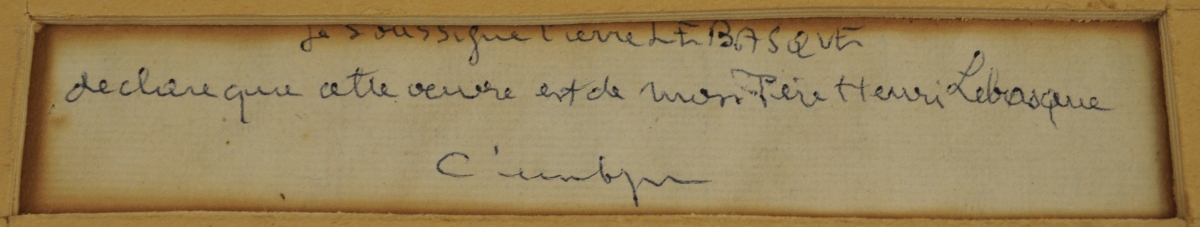 je soussigne Pierre LE BASQUE
declare que cette oeuvre est de mon Père Henri Lebasque